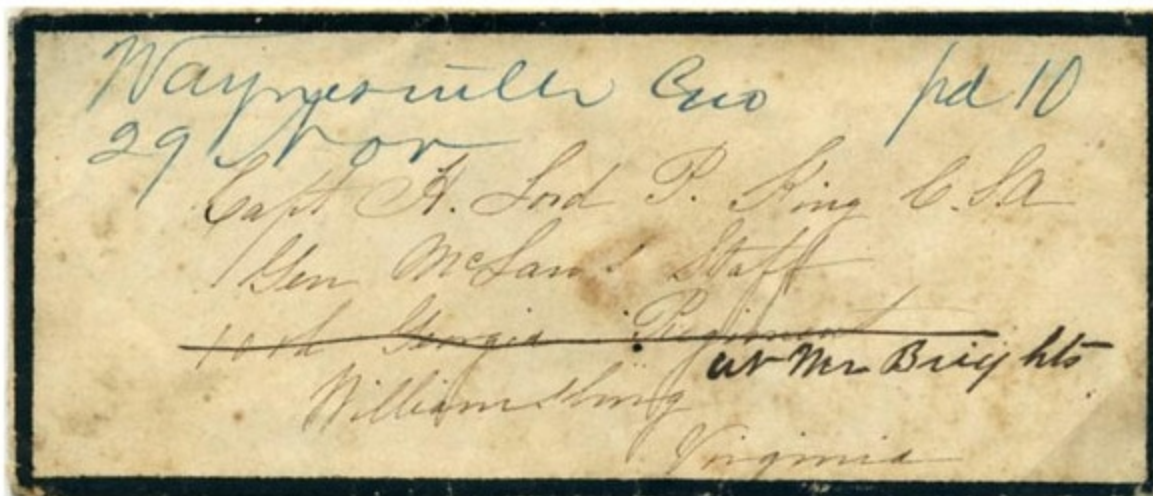 Waynesville Geo pd 10
29 Nov
Capt H. Lord P. King C.S.A
Gen McLaws' Staff
10th Georgia Regiment
at Mr Brights
Williamsburg
Virginia